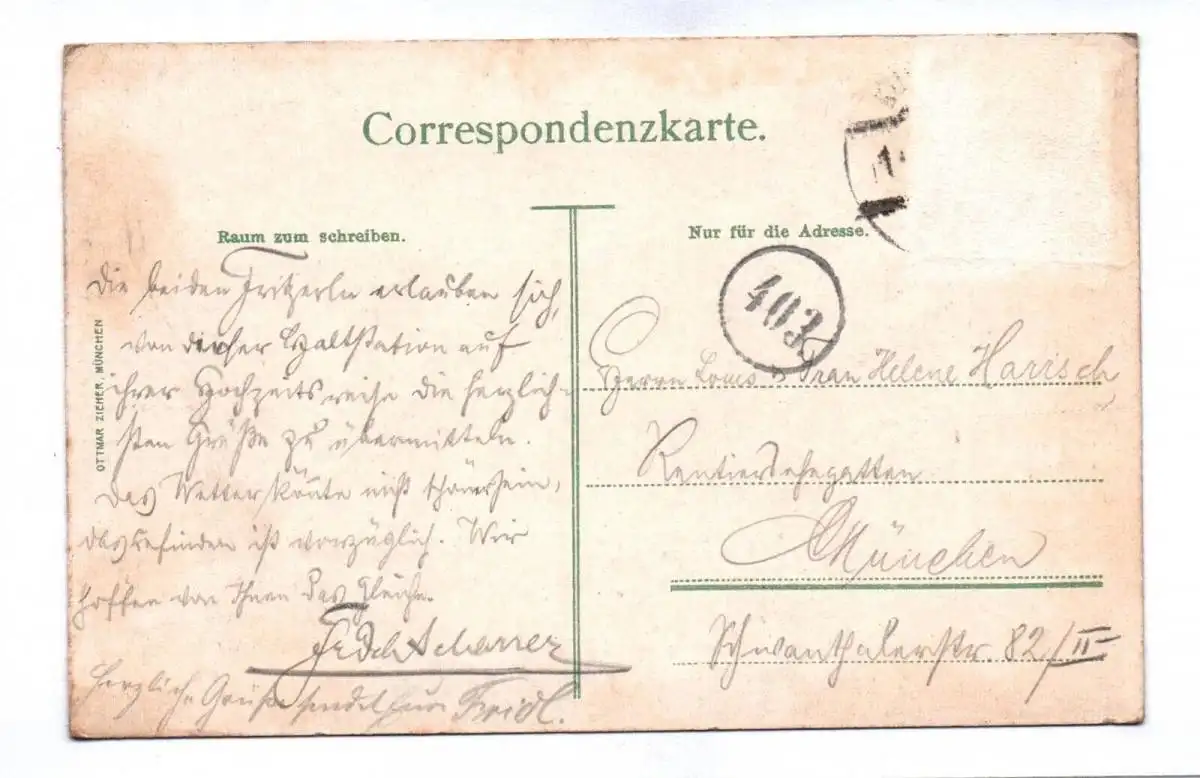 Correspondenzkarte.
Raum zum schreiben.
Nur für die Adresse.
OTTMAR ZIEHER, MÜNCHEN
403
Die beiden Fritzerln erlauben sich,
von dieser Haltstation auf
ihrer Hochzeitsreise die herzlich-
sten Grüße zu übermitteln.
Das Wetter könnte nicht schöner sein,
das Befinden ist vorzüglich. Wir
hoffen von Ihnen das Gleiche.
Scharrer
Herzliche Grüße sendet Fridl.
Herrn Louis u. Frau Helene Harrisch
Rentiersehegatten
München
Schwanthalerstr. 82/II